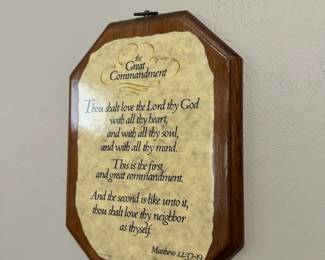 the
Great
Commandment
Thou shalt love the Lord thy God
with all thy heart,
and with all thy soul,
and with all thy mind.
This is the first
and great commandment.
And the second is like unto it,
thou shalt love thy neighbor
as thyself.
Matthew 22:37-39